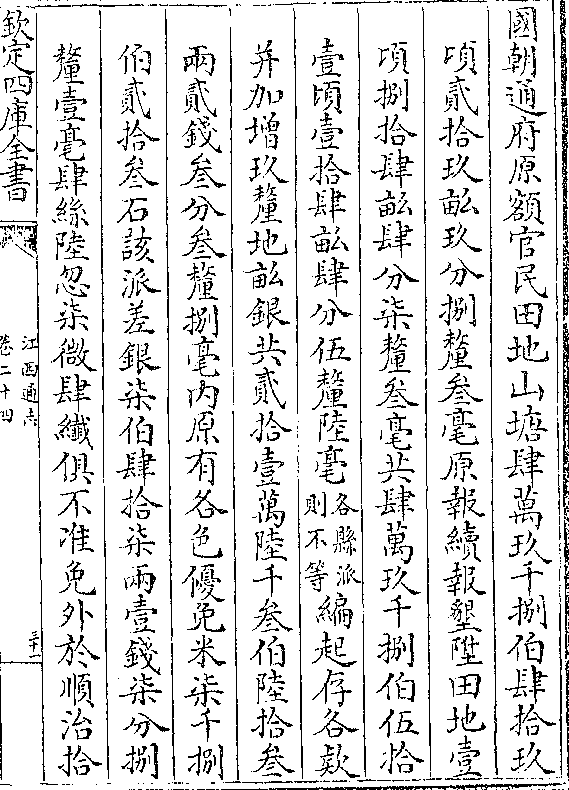 國朝通府原額官民田地山塘肆萬玖千捌伯肆拾玖
頃貳拾玖畝玖分捌釐叁毫原報續報墾陞田地壹
頃捌拾肆畝肆分柒釐叁毫共肆萬玖千捌伯伍拾
壹頃壹拾肆畝肆分伍釐陸毫各縣派則不等編起存各款
并加增玖釐地畝銀共貳拾壹萬陸千叁伯陸拾叁
兩貳錢叁分叁釐捌毫内原有各色優免米柒千捌
伯貳拾叁石該派差銀柒伯肆拾柒兩壹錢柒分捌
釐壹毫肆絲陸忽柒微肆纖俱不准免外於順治拾
欽定四庫全書
江西通志
卷二十四
三十一